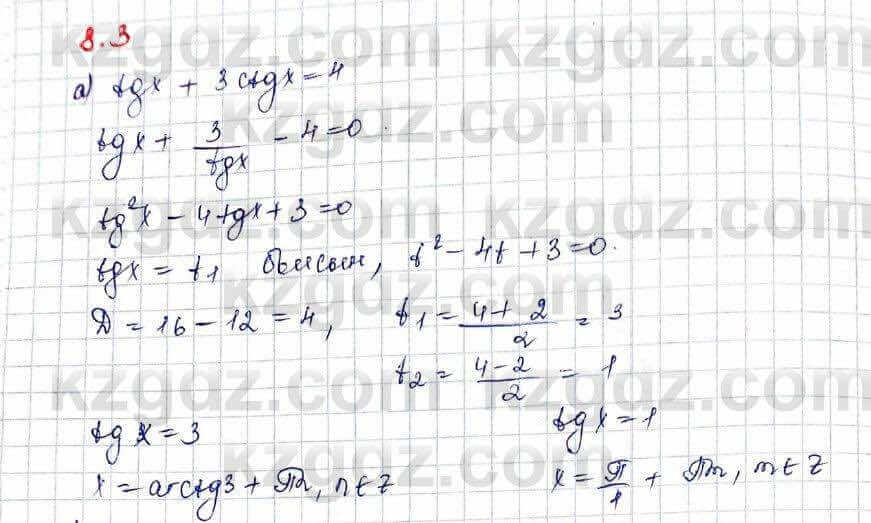 8.3
а) tgx + 3ctgx = 4
tgx + 3/tgx - 4 = 0
tg²x - 4tgx + 3 = 0
tgx = t, болсын, t² - 4t + 3 = 0.
D = 16 - 12 = 4, t₁ = (4 + 2)/2 = 3
t₂ = (4 - 2)/2 = 1
tgx = 3 tgx = 1
x = arctg3 + πn, n ∈ Z x = π/1 + πn, n ∈ Z
kzgdz.com kzgdz.com
kzgdz.com
kzgdz.com kzgdz.com
kzgdz.com
kzgdz.com kzgdz.com
kzgdz.com